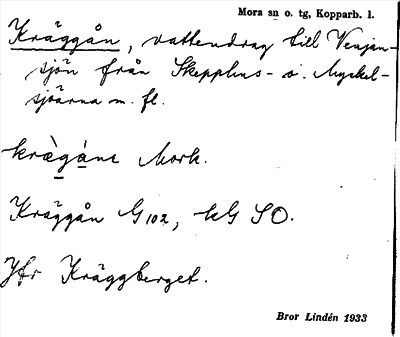 Mora sn o. tg, Kopparb. l.
Kräggån, vattendrag till Venjan-
sjön från Skepplus- o. Myckel-
sjöarna m. fl.
kræ̀gȧ́nẹ Mork.
Kräggån G102, kG SO.
Jfr Kräggberget.
Bror Lindén 1933